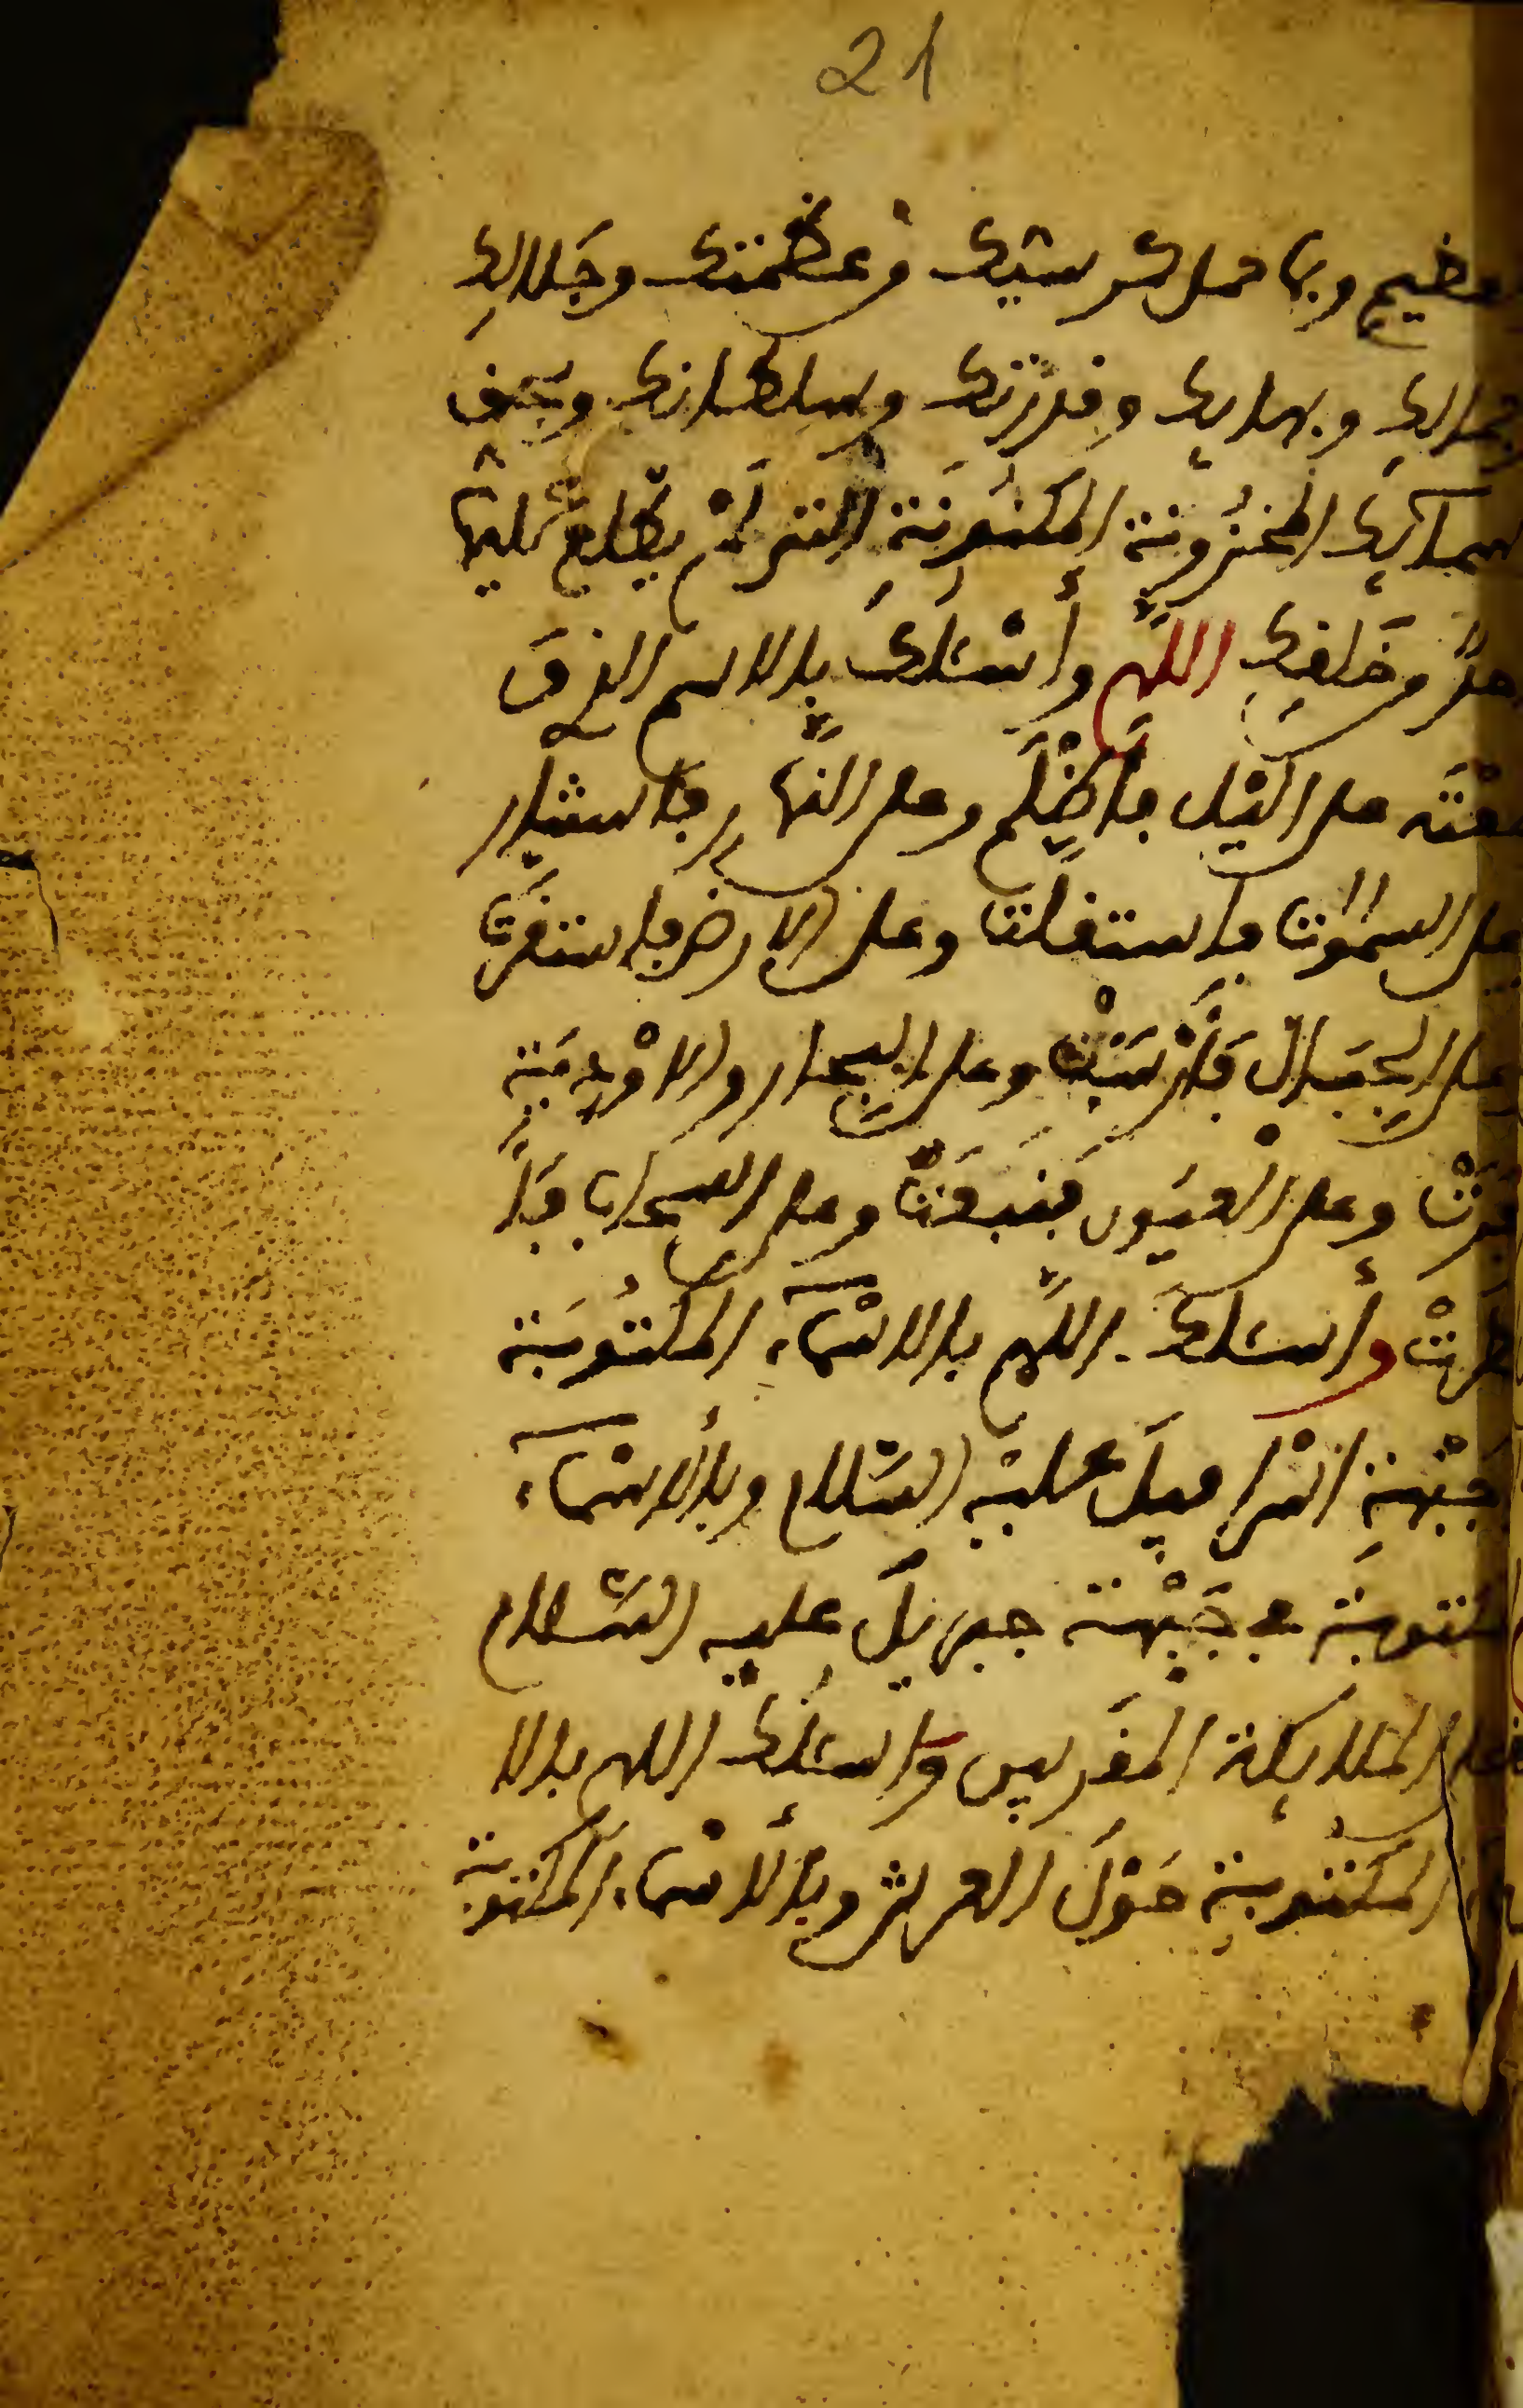 21
عظيم وبما حمل كرسيك وعظمتك وجلالك
وجمالك وبهايك وقدرتك وسلطانك وبحق
اسمآئك المخزونة المكنونة التى لم يطلع عليها
احدٌ من خلقك اللهم وأسْئلك بالاسم الذى
وضعته على اليل فأظلم وعلى النهار فاستنار
وعلى السموات فاستقلت وعلى الارض فاستقرت
وعلى الجبال فأرْسَتْ وعلى البحار والاوْدية
فجرت وعلى العيون فنبعت وعلى السحاب فأ
مطرت وأسئلك اللهم بالاسْمآء المكتوبة
جبْهة اسْرافيل عليه السّلام وبالاسْمآء
المكتوبة في جبْهة جبريل عليه السّلام
وعلى الملايكة المقربين واسئلك اللهم بالا
سماء المكتوبة حوْل العرش وبالاسْماء المكتوبة